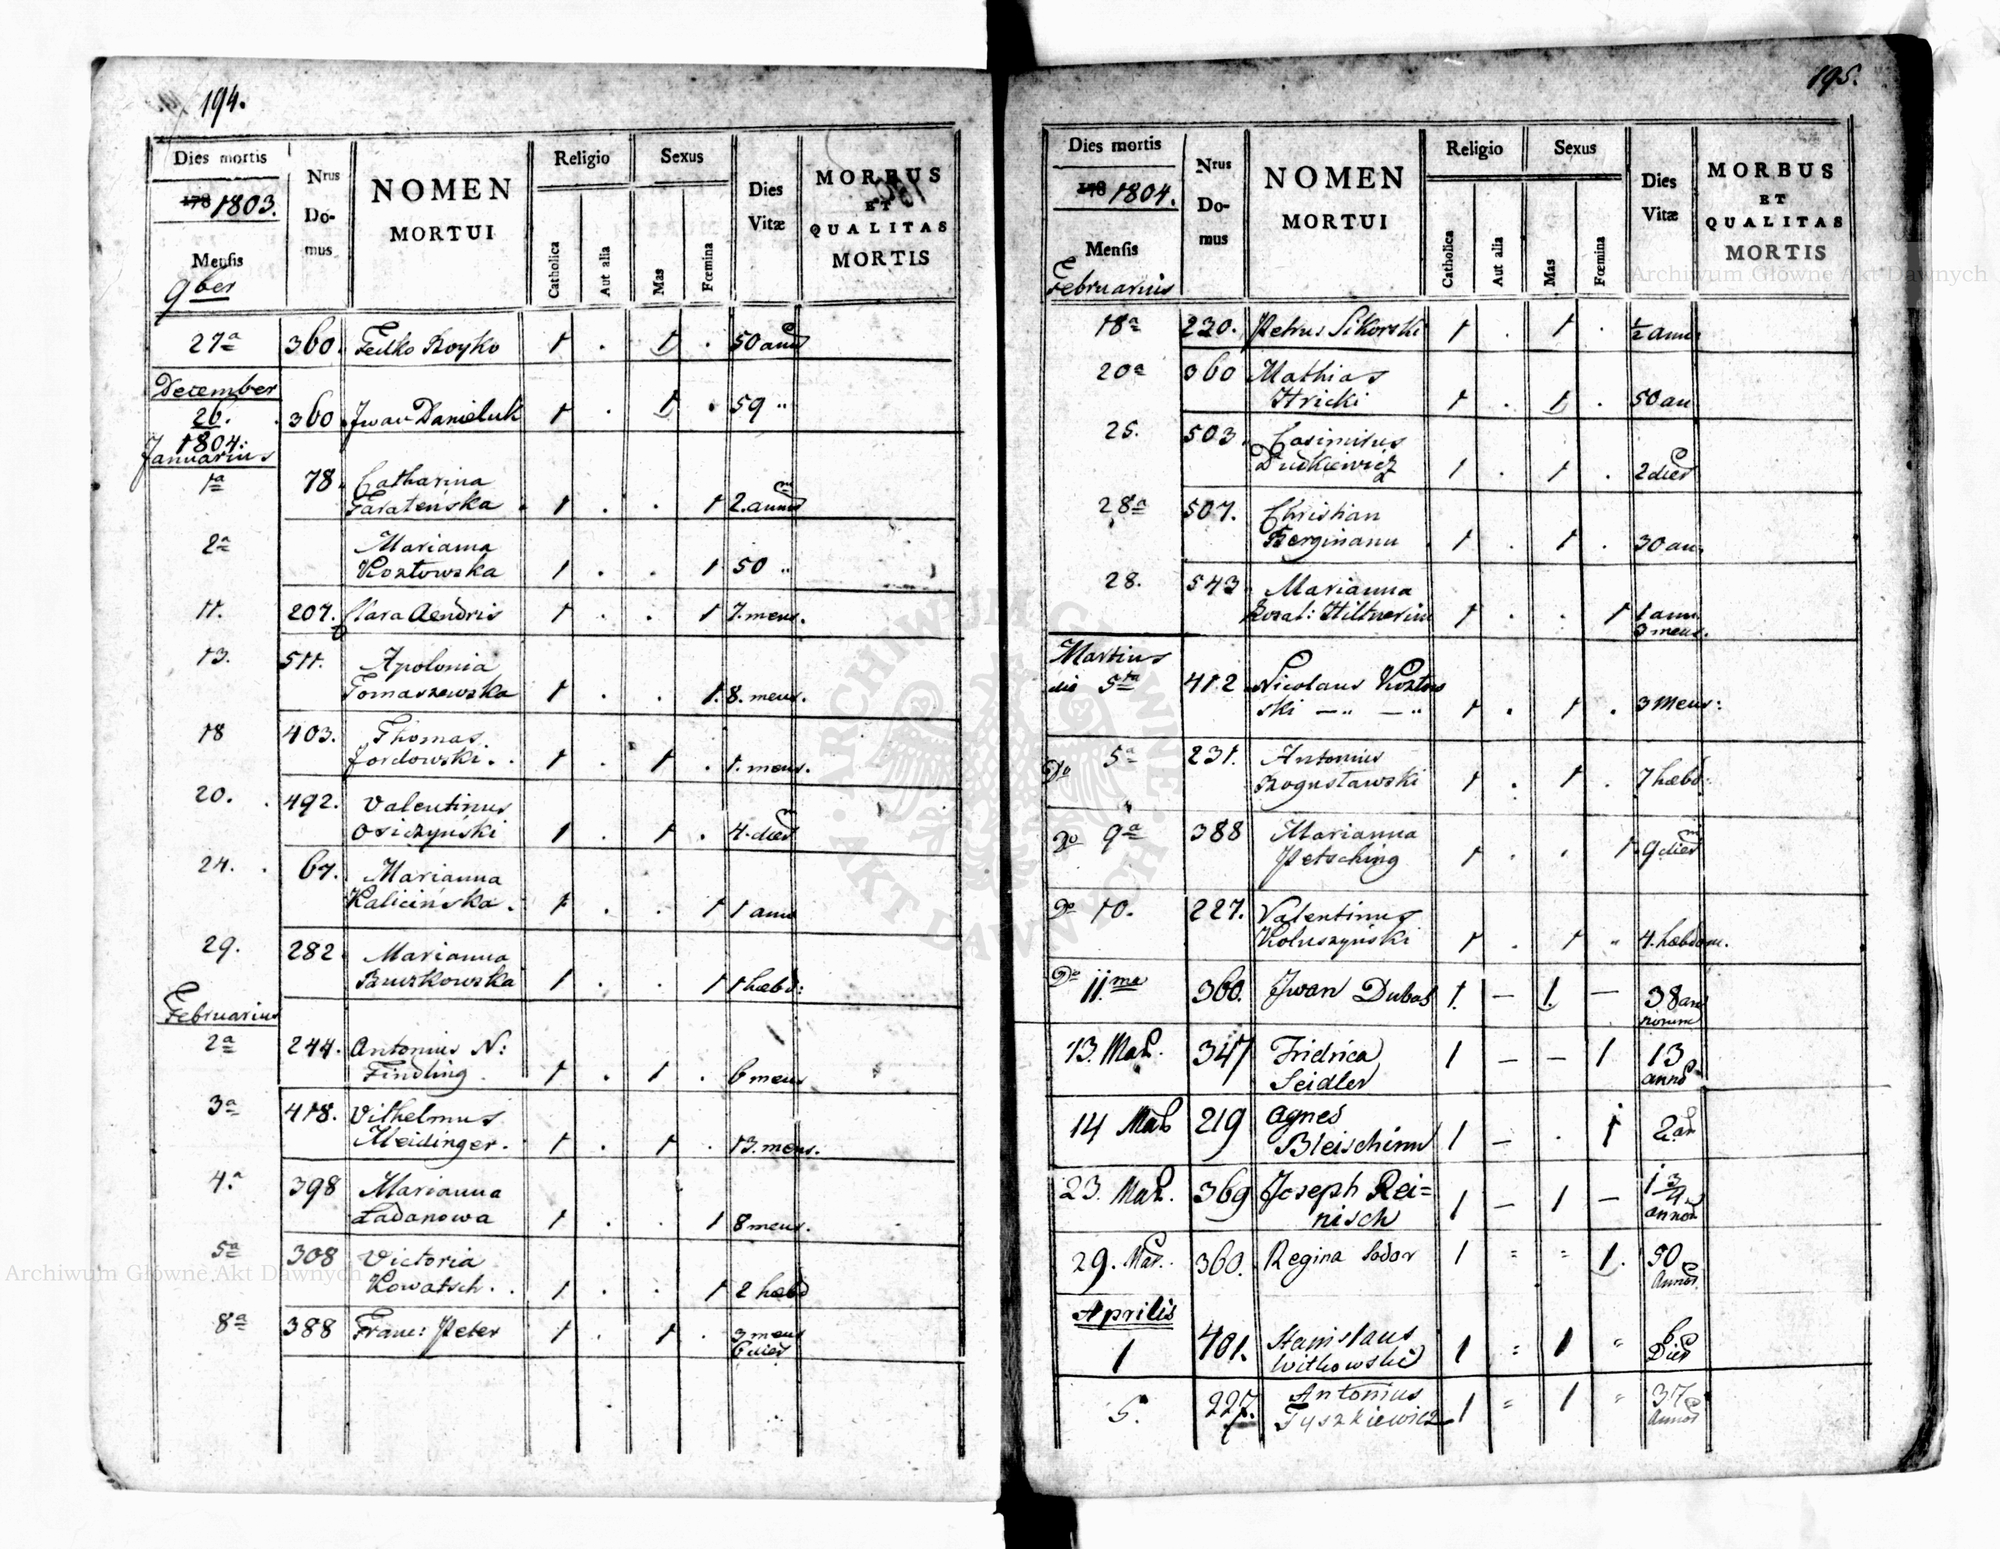 194.
Dies mortis
178 1803.
Mensis
9ber
Nrus
Do-
mus
NOMEN
MORTUI
Religio
Catholica
Aut alia
Sexus
Mas
Fœmina
Dies
Vitæ
MORBUS
ET
QUALITAS
MORTIS
27a 360. Fedko Boyko 1 . 1 . 50 ann
December
26. 360 Jwan Danieluk 1 . 1 . 59 "
1804.
Januarius
1a 78. Catharina
Taratenska 1 . . 1 2. annor
2a Marianna
Kozłowska 1 . . 1 50 "
11. 207. Clara Aendris 1 . . 1 7. mens.
13. 511. Apolonia
Tomaszewska 1 . . 1. 8. mens.
18 403. Thomas
Jordowski. 1 . 1 . 1. mens.
20. 492. Valentinus
Osiczyński 1 . 1 . 4. dies
24. 67. Marianna
Kalicińska. 1 . . 1 1 ann
29. 282. Marianna
Buszkowska 1 . . 1 1 hebd:
Februarius
2a 244. Antonius N:
Findling 1 . 1 . 6 mens
3a 418. Vilhelmus
Meidinger. 1 . 1 . 13. mens.
4.a 398 Marianna
Ładanowa 1 . . 1 8 mens.
5a 308 Victoria
Kowatsch. 1 . . 1 2 hebd
8a 388 Franc: Peter 1 . 1 . 3 mens
6 dies
195.
Dies mortis
178 1804.
Mensis
Februarius
Nrus
Do-
mus
NOMEN
MORTUI
Religio
Catholica
Aut alia
Sexus
Mas
Fœmina
Dies
Vitæ
MORBUS
ET
QUALITAS
MORTIS
18a 220. Petrus Sikorski 1 . 1 . ½ ann:
20a 360 Mathias
Hricki 1 . 1 . 50 an
25. 503. Casimirus
Dudkiewicz 1 . 1 . 2 dies
28a 507. Christian
Bergmann 1 . 1 . 30 an.
28. 543. Marianna
Rozal: Hiltnerin 1 . . 1 1 ann.
3 mens.
Martius
die 5ta 412 Nicolaus Kozłow
ski —" —" 1 . 1 . 3 mens:
Do 5a 231. Antonius
Bogusławski 1 . 1 . 7 hebd:
Do 9a 388 Marianna
Petsching 1 . . 1. 9 dies
Do 10. 227. Valentinus
Koluszyński 1 . 1 " 4. hebdom.
Do 11.ma 360. Jwan Dubas 1. — 1. — 38 an
norum
13. Mar. 347 Fridrica
Seidler 1 — — 1 13
anno
14 Mar 219 Agnes
Bleischinn 1 — . 1 2 an
23. Mar. 369 Joseph Rei=
nisch 1 — 1 — 1 3/4
annor
29. Mar. 360. Regina Sodor 1 = = 1. 50
Annor.
Aprilis
1 401. Stanislaus
Witkowski 1 = 1 " 6
Dies
5. 227. Antonius
Tyszkiewicz 1 = 1 " 37
Annor
Archiwum Główne Akt Dawnych
Archiwum Główne Akt Dawnych
ARCHIWUM GŁÓWNE
AKT DAWNYCH